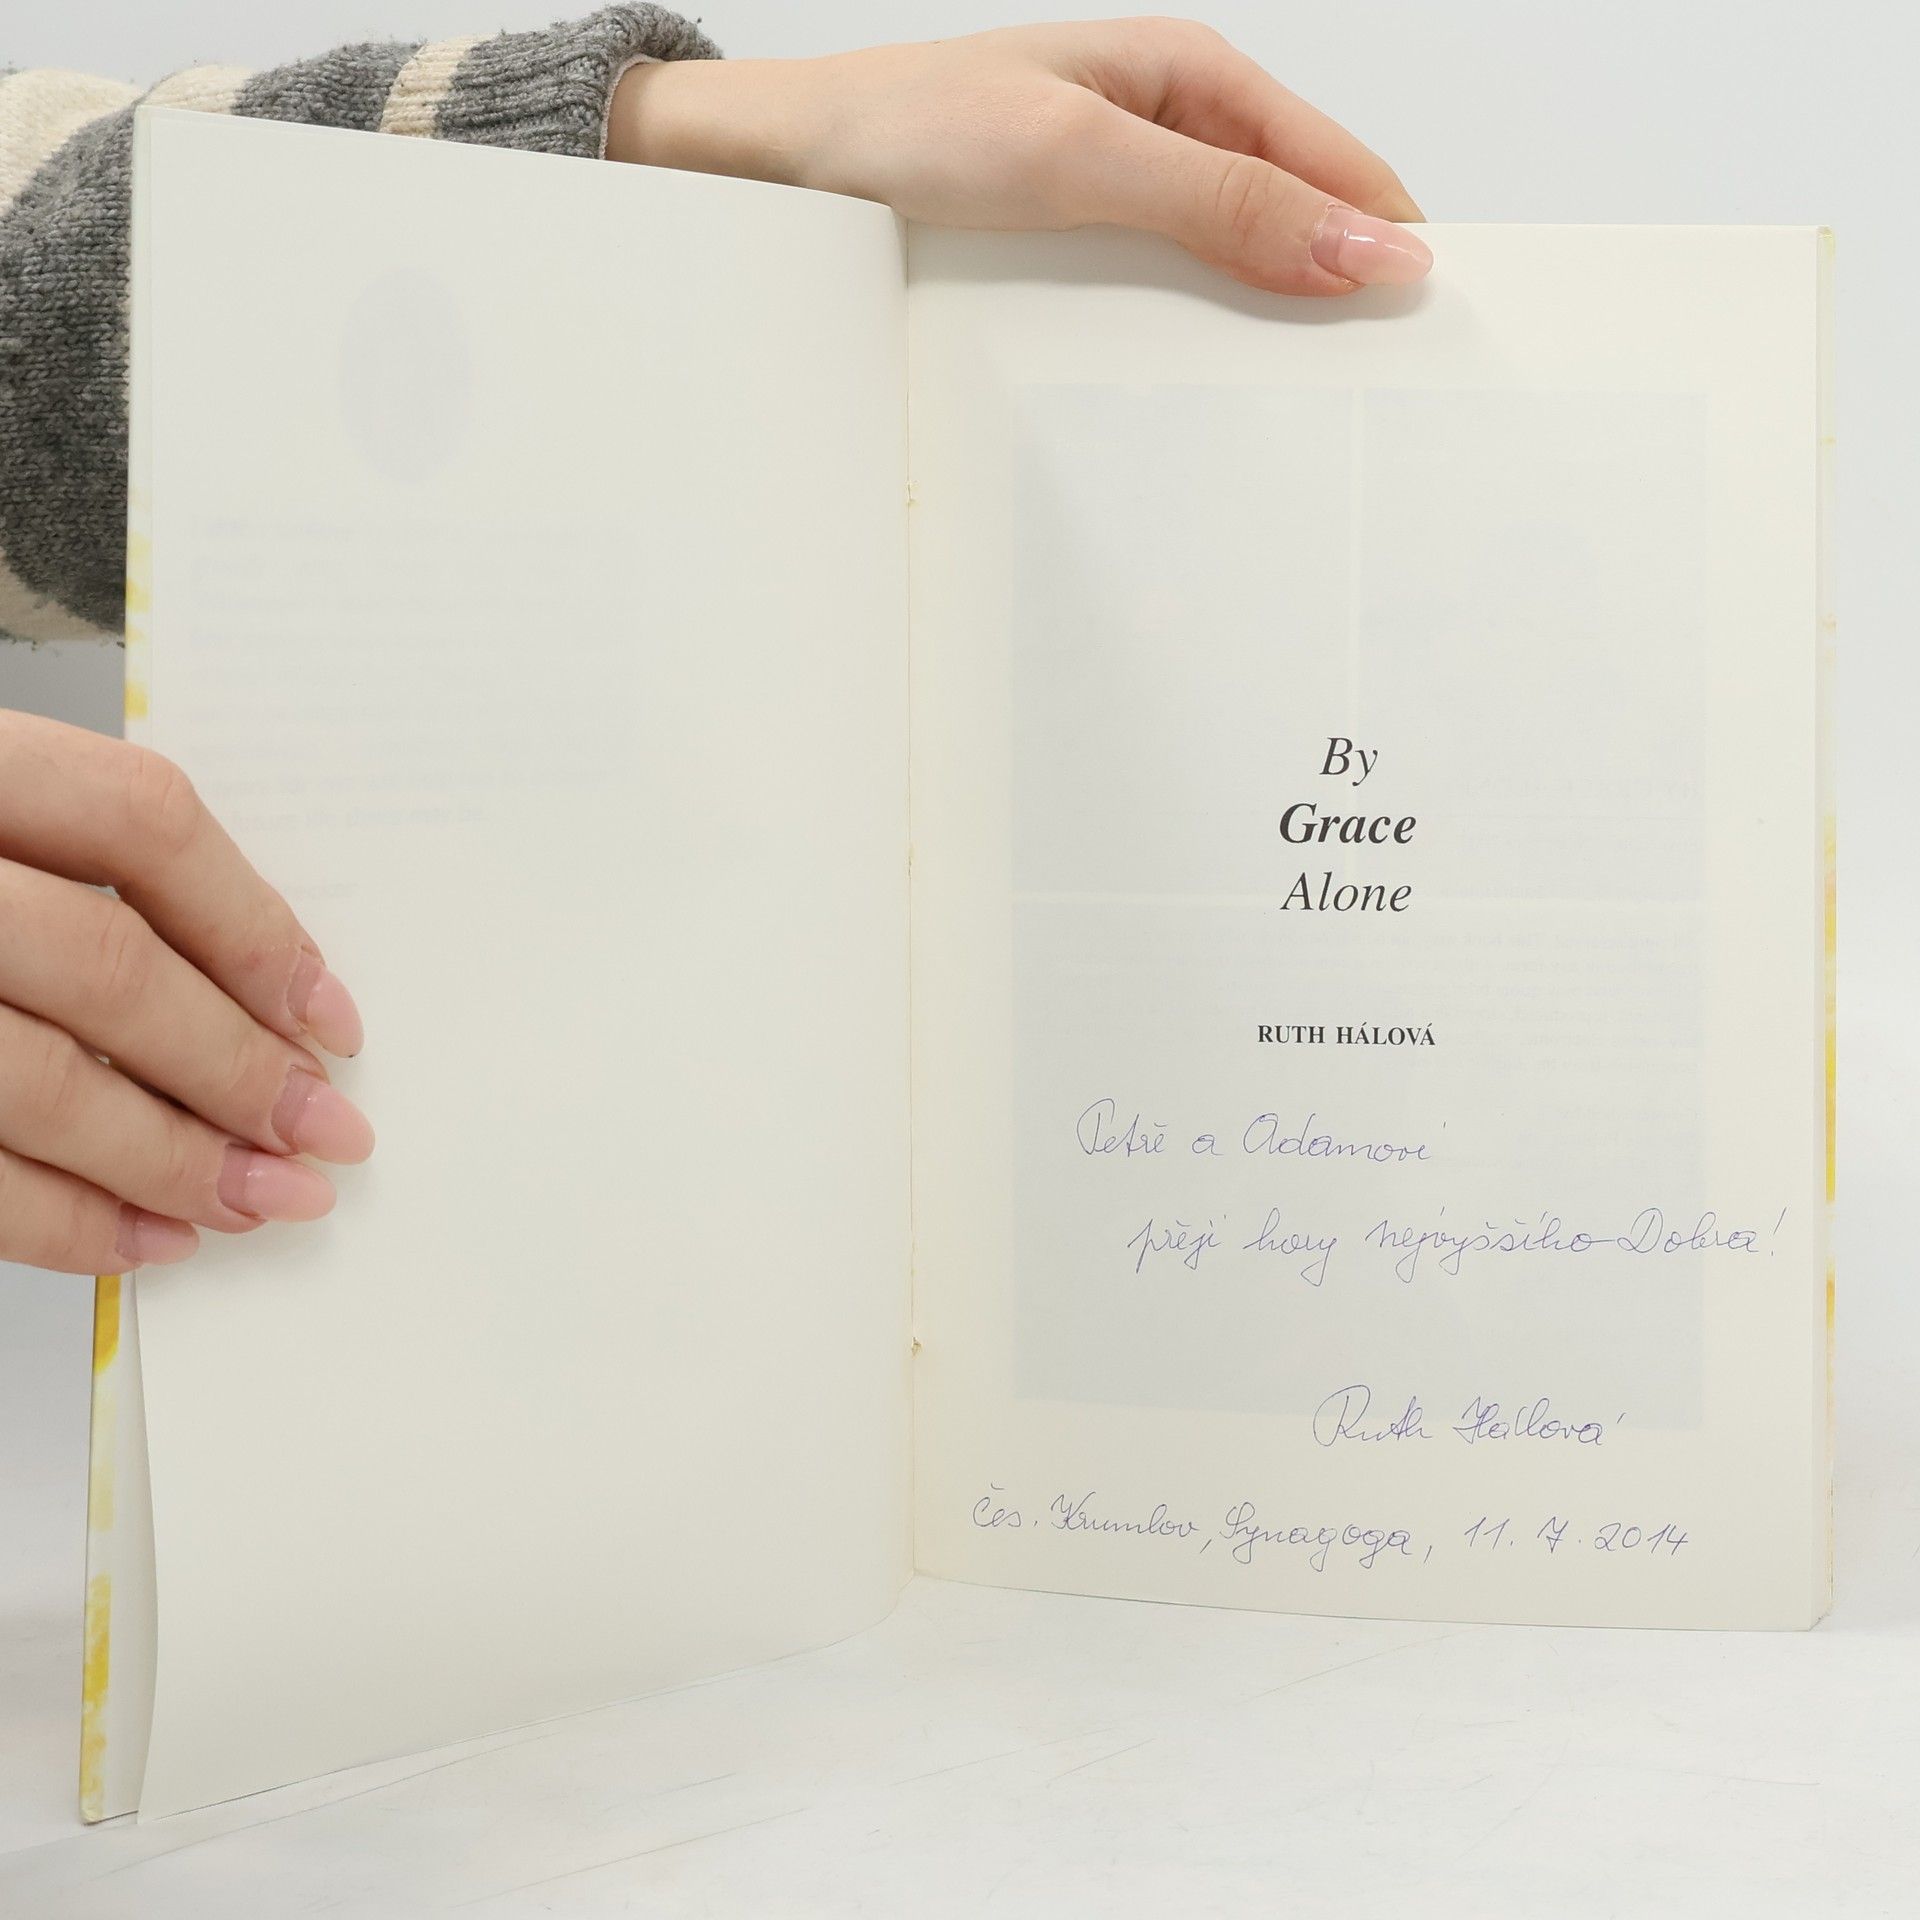 By
Grace
Alone
RUTH HÁLOVÁ
Petře a Adamovi
přeji hory nejvyššího Dobra!
Ruth Hálová
Čes. Krumlov, Synagoga, 11. 7. 2014